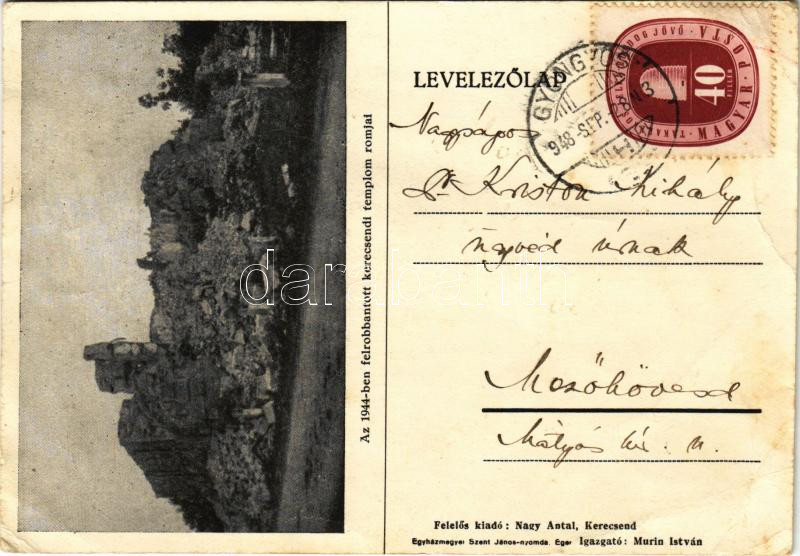 Az 1944-ben felrobbantott kerecsendi templom romjai
LEVELEZŐLAP
MAGYAR · POSTA
40
FILLÉR
GYÖNGYÖS
948 · SEP.
Nagyságos
Dr Kriston Mihály
ügyvéd úrnak
Mezőkövesd
Mátyás kir. u.
darabanth
Felelős kiadó: Nagy Antal, Kerecsend
Egyházmegyei Szent János-nyomda. Eger Igazgató: Murin István